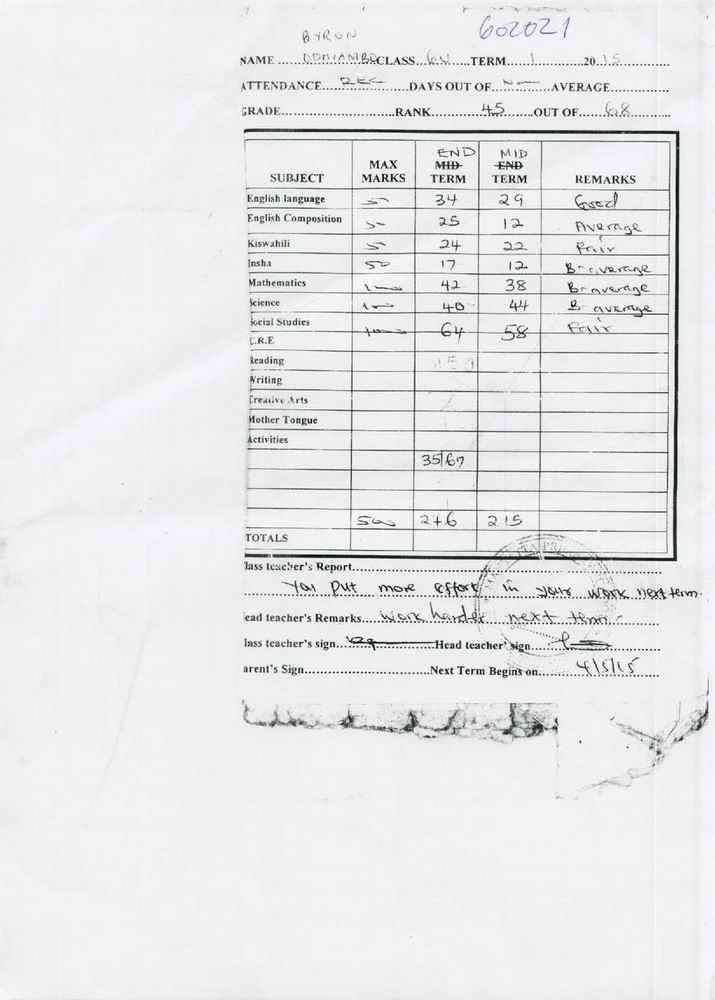 602021
BYRON
NAME ODHIAMBO CLASS 6W TERM 1 2015
ATTENDANCE REG DAYS OUT OF AVERAGE
GRADE RANK 45 OUT OF 68
SUBJECT MAX MARKS END MID TERM MID END TERM REMARKS
English language 50 34 29 Good
English Composition 50 25 12 Average
Kiswahili 50 24 22 Fair
Insha 50 17 12 B-average
Mathematics 100 42 38 Br average
Science 100 40 44 B average
Social Studies
C.R.E 100 64 58 Fair
Reading
Writing
Creative Arts
Mother Tongue
Activities
35/67
500 246 215
TOTALS
lass teacher's Report
You put more effort in your work next term.
ead teacher's Remarks work harder next term.
lass teacher's sign Head teacher' sign
arent's Sign Next Term Begins on 4/5/15